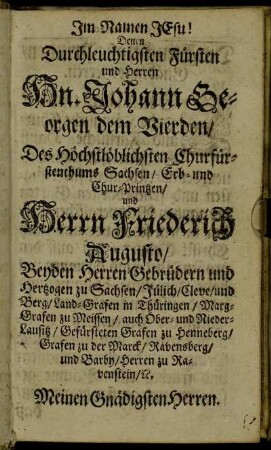 Im Namen JEsu!
Denen
Durchleuchtigsten Fürsten
und Herren
Hn. Johann Ge-
orgen dem Vierden/
Des Höchstlöblichsten Churfür-
stenthums Sachsen/ Erb- und
Chur-Printzen/
und
Herrn Friederich
Augusto/
Beyden Herren Gebrüdern und
Hertzogen zu Sachsen/ Jülich/ Cleve/ und
Berg/ Land-Grafen in Thüringen/ Marg-
Grafen zu Meissen/ auch Ober- und Nieder-
Lausitz/ Gefürsteten Grafen zu Henneberg/
Grafen zu der Marck/ Ravensberg/
und Barby/ Herren zu Ra-
venstein/ ꝛc.
Meinen Gnädigsten Herren.